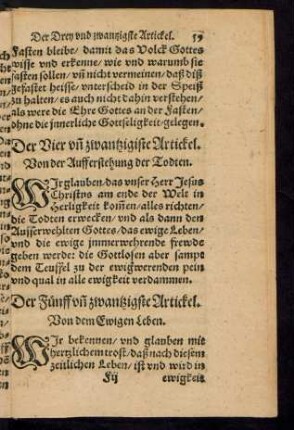 Der Drey vnd zwantzigste Artickel. 59
Fasten bleibe/ damit das Volck Gottes
wisse vnd erkenne/ wie vnd warumb sie
fasten sollen/ vñ nicht vermeinen/ daß diß
gefastet heisse/ vnterscheid in der Speiß
zu halten/ es auch nicht dahin verstehen/
als were die Ehre Gottes an der Fasten/
ohne die jnnerliche Gottseligkeit gelegen.
Der Vier vñ zwantzigiste Artickel.
Von der Aufferstehung der Todten.
WIr glauben/ das vnser Herr Jesus
Christus am ende der Welt in
Herligkeit kom̃en/ alles richten/
die Todten erwecken/ vnd als dann den
Ausserwehlten Gottes/ das ewige Leben/
vnd die ewige jmmerwehrende frewde
geben werde: die Gottlosen aber sampt
dem Teuffel zu der ewigwerenden pein
vnd qual in alle ewigkeit verdammen.
Der Fünff vñ zwantzigste Artickel.
Von dem Ewigen Leben.
WIr bekennen/ vnd glauben mit
hertzlichem trost/ daß nach diesem
zeitlichen Leben/ ist vnd wird in
Fij ewigkeit